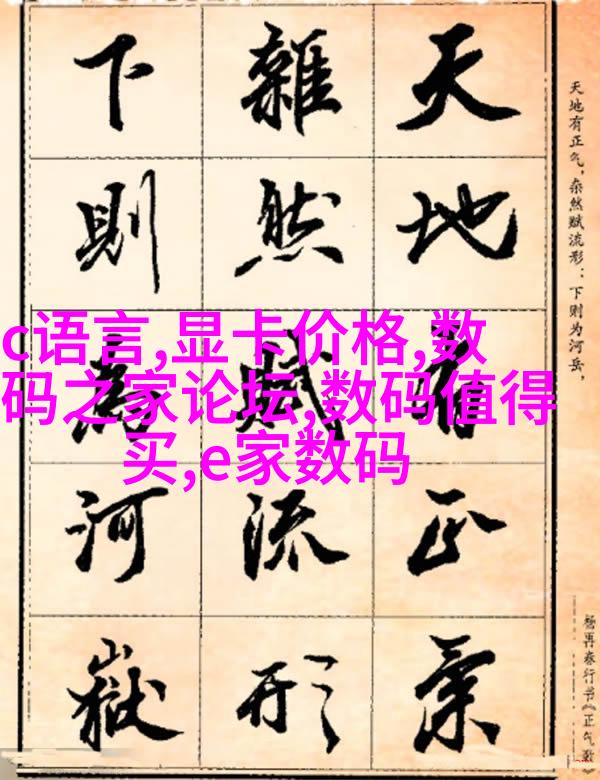 天地有正氣
雜然賦流形
下則為河嶽
天地有正气，杂然赋流形：下则为河岳，
杨再春行书《正气歌》
c语言,显卡价格,数
码之家论坛,数码值得
买,e家数码